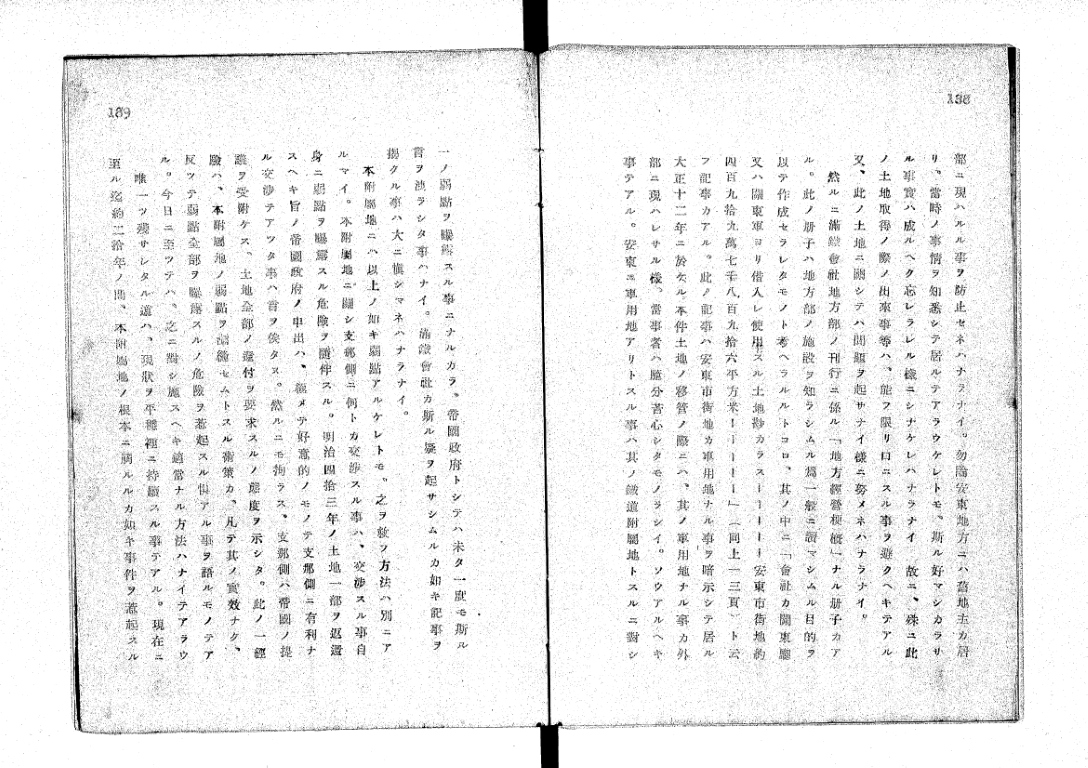 138
部ニ現ハルル事ヲ防止セネハナラナイ。勿論安東地方ニハ舊地主カ居
リ。當時ノ事情ヲ知悉シテ居ルテアラウケレトモ、斯ル好マシカラサ
ル事實ハ成ルヘク忘レラレル樣ニシナケレハナラナイ 故ニ、殊ニ此
ノ土地取得ノ際ノ出來事等ハ、能フ限リ口ニスル事ヲ避クヘキテアル
又、此ノ土地ニ關シテハ問題ヲ起サナイ樣ニ努メネハナラナイ。
然ルニ滿鐵會社地方部ノ刊行ニ係ル「地方經營梗概」ナル册子カア
ル。此ノ册子ハ地方部ノ施設ヲ知ラシムル爲一般ニ讀マシムル目的ヲ
以テ作成セラレタモノト考ヘラルルトコロ、其ノ中ニ「會社カ關東廳
又ハ關東軍ヨリ借入レ使用スル土地尠カラスーーーーー安東市街地約
四百九拾九萬七千八百九拾六平方米ーーーーー」(同上一三頁)ト云
フ記事カアル。此ノ記事ハ安東市街地カ軍用地ナル事ヲ暗示シテ居ル
大正十二年ニ於ケル本件土地ノ移管ノ際ニハ、其ノ軍用地ナル事カ外
部ニ現ハレサル樣、當事者ハ隨分苦心シタモノラシイ。ソウアルヘキ
事テアル。安東ニ軍用地アリトスル事ハ其ノ鐵道附屬地トスルニ對シ
139
一ノ弱點ヲ曝露スル事ニナルカラ。帝國政府トシテハ未タ一度モ斯ル
言ヲ洩ラシタ事ハナイ。滿鐵會社カ斯ル疑ヲ起サシムルカ如キ記事ヲ
揭クル事ハ大ニ愼シマネハナラナイ。
本附屬地ニハ以上ノ如キ弱點アルケレトモ。之ヲ救フ方法ハ別ニア
ルマイ。本附屬地ニ關シ支那側ニ何トカ交涉スル事ハ、交涉スル事自
身ニ弱點ヲ曝露スル危險ヲ隨伴スル。明治四拾三年ノ土地一部ヲ返還
スヘキ旨ノ帝國政府ノ申出ハ、極メテ好意的ノモノテ支那側ニ有利ナ
ル交涉テアツタ事ハ言ヲ俟タス。然ルニモ拘ラス、支那側ハ帝國ノ提
議ヲ受附ケス、土地全部ノ還付ヲ要求スルノ態度ヲ示シタ。此ノ一經
驗ハ、本附屬地ノ弱點ヲ彌縫セムトスル施策カ、凡テ其ノ實效ナク、
反ツテ弱點全部ヲ曝露スルノ危險ヲ惹起スル惧アル事ヲ語ルモノテア
ル。今日ニ至ツテハ、之ニ對シ施スヘキ適當ナル方法ハナイテアラウ
唯一ツ殘サレタル道ハ、現狀ヲ平穩裡ニ持續スル事テアル。現在ニ
至ル迄約二拾年ノ間、本附屬地ノ根本ニ觸ルルカ如キ事件ヲ惹起スル